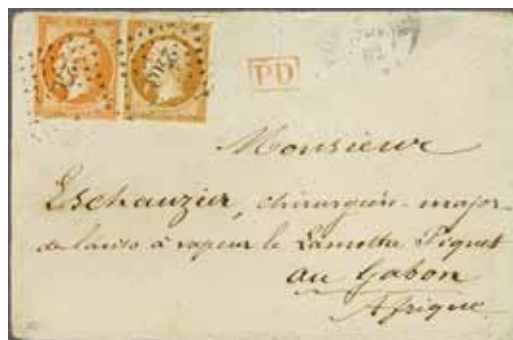 PD
Monsieur
Eschauzier, chirurgien-major
de l'aviso à vapeur le Lamothe Piquet
au Gabon
Afrique